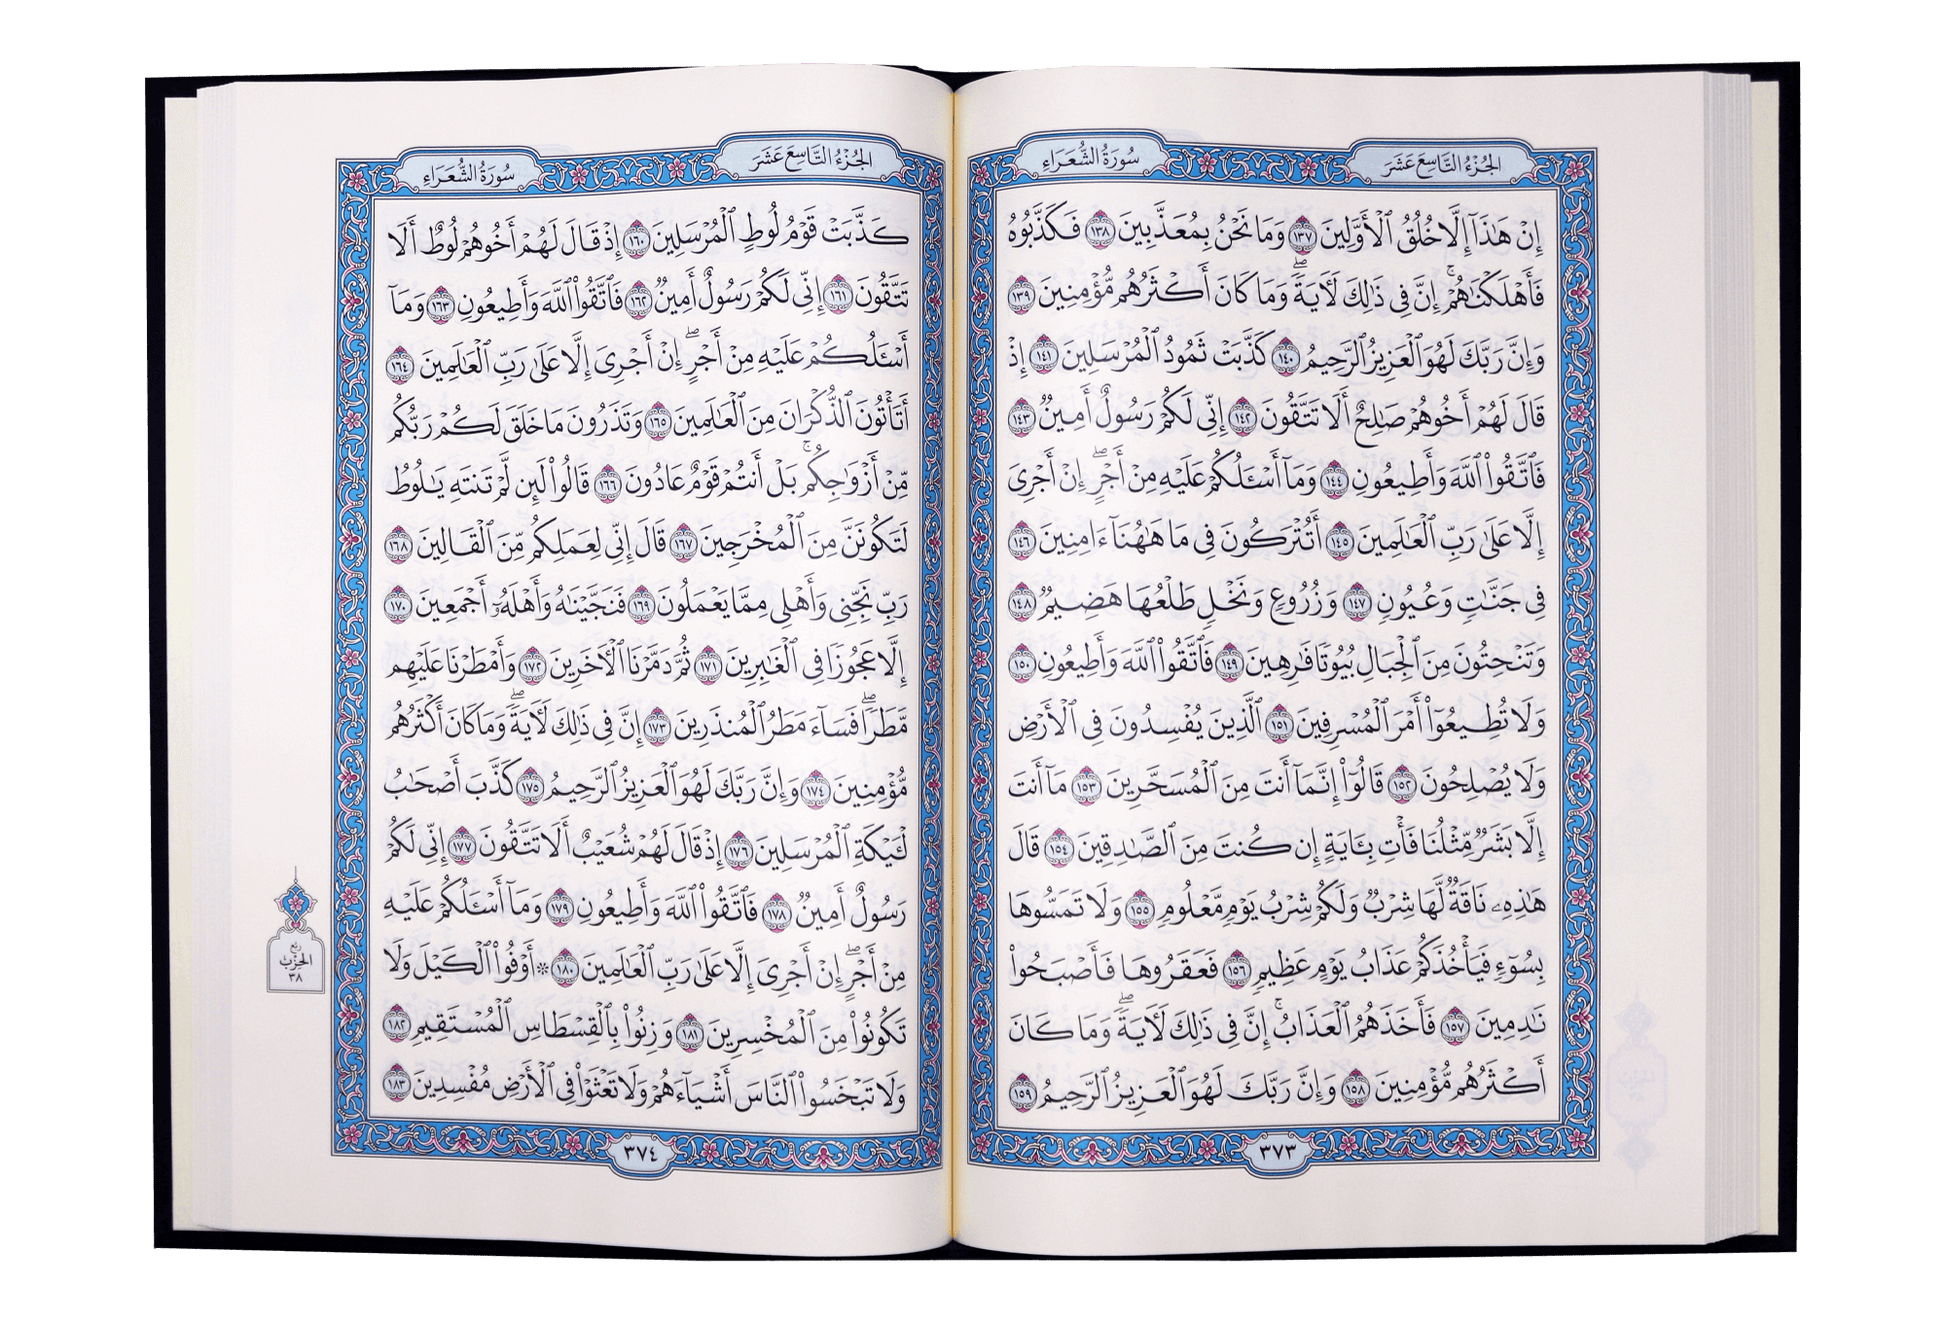 الجُزْءُ التَّاسِعَ عَشَرَ
سُورَةُ الشُّعَرَاءِ
إِنْ هَٰذَآ إِلَّا خُلُقُ ٱلْأَوَّلِينَ ١٣٧ وَمَا نَحْنُ بِمُعَذَّبِينَ ١٣٨ فَكَذَّبُوهُ
فَأَهْلَكْنَٰهُمْۚ إِنَّ فِى ذَٰلِكَ لَأٓيَةًۖ وَمَا كَانَ أَكْثَرُهُم مُّؤْمِنِينَ ١٣٩
وَإِنَّ رَبَّكَ لَهُوَ ٱلْعَزِيزُ ٱلرَّحِيمُ ١٤٠ كَذَّبَتْ ثَمُودُ ٱلْمُرْسَلِينَ ١٤١ إِذْ
قَالَ لَهُمْ أَخُوهُمْ صَٰلِحٌ أَلَا تَتَّقُونَ ١٤٢ إِنِّى لَكُمْ رَسُولٌ أَمِينٌ ١٤٣
فَٱتَّقُوا۟ ٱللَّهَ وَأَطِيعُونِ ١٤٤ وَمَآ أَسْـَٔلُكُمْ عَلَيْهِ مِنْ أَجْرٍۖ إِنْ أَجْرِىَ
إِلَّا عَلَىٰ رَبِّ ٱلْعَٰلَمِينَ ١٤٥ أَتُتْرَكُونَ فِى مَا هَٰهُنَآ ءَامِنِينَ ١٤٦
فِى جَنَّٰتٍ وَعُيُونٍ ١٤٧ وَزُرُوعٍ وَنَخْلٍ طَلْعُهَا هَضِيمٌ ١٤٨
وَتَنْحِتُونَ مِنَ ٱلْجِبَالِ بُيُوتًا فَٰرِهِينَ ١٤٩ فَٱتَّقُوا۟ ٱللَّهَ وَأَطِيعُونِ ١٥٠
وَلَا تُطِيعُوٓا۟ أَمْرَ ٱلْمُسْرِفِينَ ١٥١ ٱلَّذِينَ يُفْسِدُونَ فِى ٱلْأَرْضِ
وَلَا يُصْلِحُونَ ١٥٢ قَالُوٓا۟ إِنَّمَآ أَنتَ مِنَ ٱلْمُسَحَّرِينَ ١٥٣ مَآ أَنتَ
إِلَّا بَشَرٌ مِّثْلُنَا فَأْتِ بِـَٔايَةٍ إِن كُنتَ مِنَ ٱلصَّٰدِقِينَ ١٥٤ قَالَ
هَٰذِهِۦ نَاقَةٌ لَّهَا شِرْبٌ وَلَكُمْ شِرْبُ يَوْمٍ مَّعْلُومٍ ١٥٥ وَلَا تَمَسُّوهَا
بِسُوٓءٍ فَيَأْخُذَكُمْ عَذَابُ يَوْمٍ عَظِيمٍ ١٥٦ فَعَقَرُوهَا فَأَصْبَحُوا۟
نَٰدِمِينَ ١٥٧ فَأَخَذَهُمُ ٱلْعَذَابُۚ إِنَّ فِى ذَٰلِكَ لَأٓيَةًۖ وَمَا كَانَ
أَكْثَرُهُم مُّؤْمِنِينَ ١٥٨ وَإِنَّ رَبَّكَ لَهُوَ ٱلْعَزِيزُ ٱلرَّحِيمُ ١٥٩
٣٧٣
الجُزْءُ التَّاسِعَ عَشَرَ
سُورَةُ الشُّعَرَاءِ
كَذَّبَتْ قَوْمُ لُوطٍ ٱلْمُرْسَلِينَ ١٦٠ إِذْ قَالَ لَهُمْ أَخُوهُمْ لُوطٌ أَلَا
تَتَّقُونَ ١٦١ إِنِّى لَكُمْ رَسُولٌ أَمِينٌ ١٦٢ فَٱتَّقُوا۟ ٱللَّهَ وَأَطِيعُونِ ١٦٣ وَمَآ
أَسْـَٔلُكُمْ عَلَيْهِ مِنْ أَجْرٍۖ إِنْ أَجْرِىَ إِلَّا عَلَىٰ رَبِّ ٱلْعَٰلَمِينَ ١٦٤
أَتَأْتُونَ ٱلذُّكْرَانَ مِنَ ٱلْعَٰلَمِينَ ١٦٥ وَتَذَرُونَ مَا خَلَقَ لَكُمْ رَبُّكُم
مِّنْ أَزْوَٰجِكُمۚ بَلْ أَنتُمْ قَوْمٌ عَادُونَ ١٦٦ قَالُوا۟ لَئِن لَّمْ تَنتَهِ يَٰلُوطُ
لَتَكُونَنَّ مِنَ ٱلْمُخْرَجِينَ ١٦٧ قَالَ إِنِّى لِعَمَلِكُم مِّنَ ٱلْقَالِينَ ١٦٨
رَبِّ نَجِّنِى وَأَهْلِى مِمَّا يَعْمَلُونَ ١٦٩ فَنَجَّيْنَٰهُ وَأَهْلَهُۥٓ أَجْمَعِينَ ١٧٠
إِلَّا عَجُوزًا فِى ٱلْغَٰبِرِينَ ١٧١ ثُمَّ دَمَّرْنَا ٱلْأٓخَرِينَ ١٧٢ وَأَمْطَرْنَا عَلَيْهِم
مَّطَرًاۖ فَسَآءَ مَطَرُ ٱلْمُنذَرِينَ ١٧٣ إِنَّ فِى ذَٰلِكَ لَأٓيَةًۖ وَمَا كَانَ أَكْثَرُهُم
مُّؤْمِنِينَ ١٧٤ وَإِنَّ رَبَّكَ لَهُوَ ٱلْعَزِيزُ ٱلرَّحِيمُ ١٧٥ كَذَّبَ أَصْحَٰبُ
لْـَٔيْكَةِ ٱلْمُرْسَلِينَ ١٧٦ إِذْ قَالَ لَهُمْ شُعَيْبٌ أَلَا تَتَّقُونَ ١٧٧ إِنِّى لَكُمْ
رَسُولٌ أَمِينٌ ١٧٨ فَٱتَّقُوا۟ ٱللَّهَ وَأَطِيعُونِ ١٧٩ وَمَآ أَسْـَٔلُكُمْ عَلَيْهِ
مِنْ أَجْرٍۖ إِنْ أَجْرِىَ إِلَّا عَلَىٰ رَبِّ ٱلْعَٰلَمِينَ ١٨٠ ۞ أَوْفُوا۟ ٱلْكَيْلَ وَلَا
تَكُونُوا۟ مِنَ ٱلْمُخْسِرِينَ ١٨١ وَزِنُوا۟ بِٱلْقِسْطَاسِ ٱلْمُسْتَقِيمِ ١٨٢
وَلَا تَبْخَسُوا۟ ٱلنَّاسَ أَشْيَآءَهُمْ وَلَا تَعْثَوْا۟ فِى ٱلْأَرْضِ مُفْسِدِينَ ١٨٣
ربع
الحزب
٣٨
٣٧٤